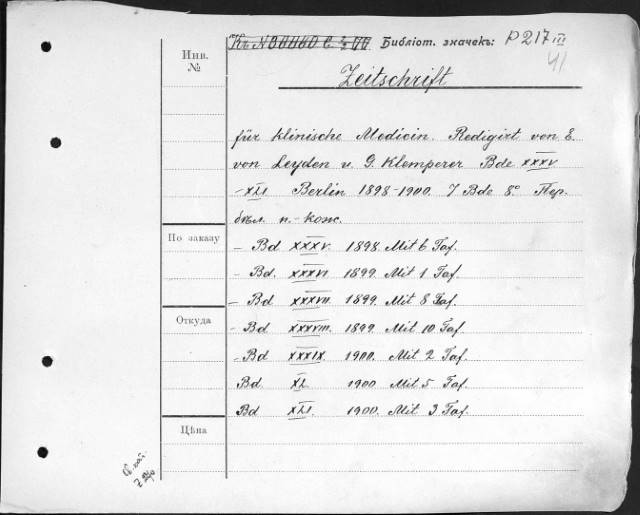 Инв. №
Библіот. значекъ: P 217 III
41
Zeitschrift
für klinische Medicin. Redigirt von E.
von Leyden u. G. Klemperer Bde XXXV
-XLI. Berlin 1898-1900. 7 Bde 8° Пер.
бѣл. п.-кож.
По заказу
- Bd XXXV. 1898. Mit 6 Taf.
- Bd. XXXVI. 1899. Mit 1 Taf.
- Bd XXXVII. 1899. Mit 8 Taf.
Откуда
- Bd XXXVIII. 1899. Mit 10 Taf.
- Bd XXXIX. 1900. Mit 2 Taf.
Bd XL. 1900 Mit 5 Taf.
Bd XLI. 1900. Mit 3 Taf.
Цѣна